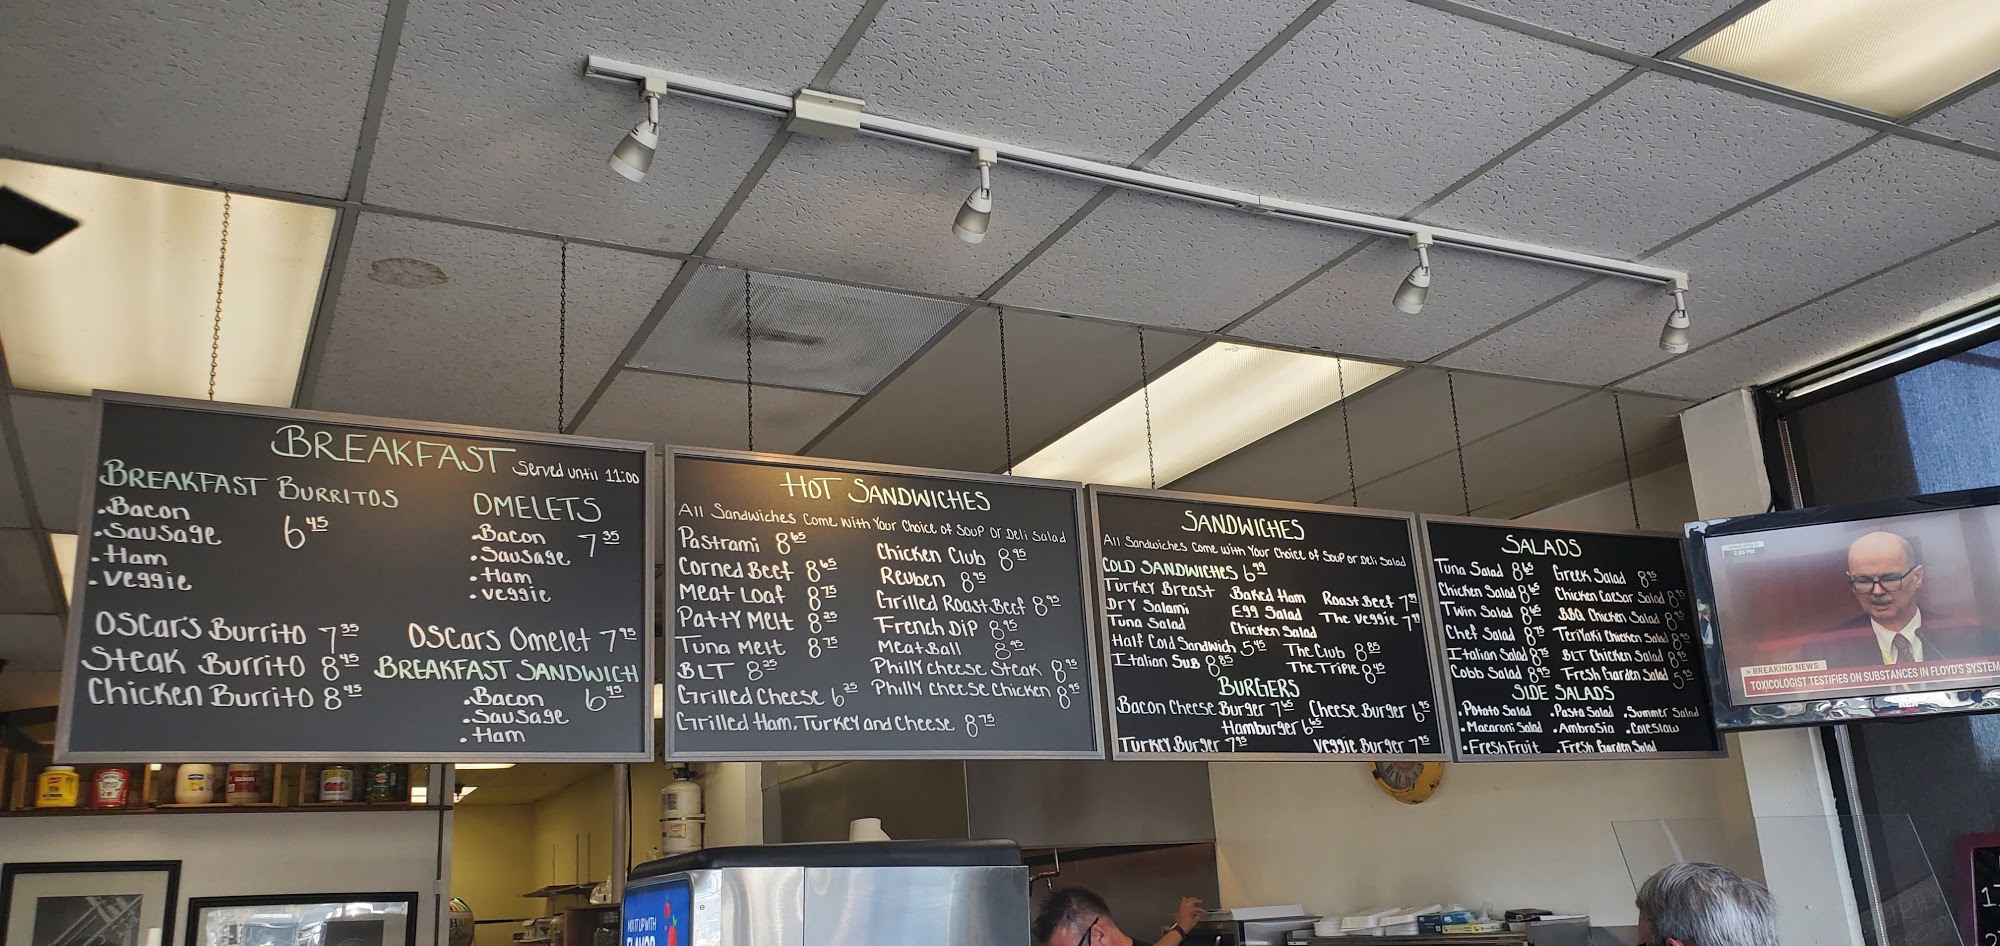 BREAKFAST Served until 11:00
BREAKFAST BURRITOS
.Bacon
.Sausage 6 45
.Ham
.veggie
OMELETS
.Bacon 7 35
.Sausage
.Ham
.veggie
Oscar's Burrito 7 35
Steak Burrito 8 45
Chicken Burrito 8 45
Oscars Omelet 7 95
BREAKFAST SANDWICH
.Bacon 6 45
.Sausage
.Ham
HOT SANDWICHES
All Sandwiches Come with Your Choice of Soup Or Deli Salad
Pastrami 8 65
Corned Beef 8 65
Meat Loaf 8 75
Patty Melt 8 25
Tuna Melt 8 75
BLT 8 25
Grilled Cheese 6 25
Grilled Ham, Turkey and Cheese 8 75
Chicken Club 8 95
Reuben 8 95
Grilled Roast Beef 8 95
French Dip 8 95
Meat Ball 8 95
Philly Cheese Steak 8 95
Philly Cheese Chicken 8 95
SANDWICHES
All Sandwiches Come with Your Choice of Soup or Deli Salad
COLD SANDWICHES 6 99
Turkey Breast Baked Ham Roast Beef 7
Dry Salami Egg Salad The Veggie 7
Tuna Salad Chicken Salad
Half Cold Sandwich 5 45 The Club 8 85
Italian Sub 8 85 The Triple 8 45
BURGERS
Bacon Cheese Burger 7 65 Cheese Burger 6 95
Hamburger 6 65
Turkey Burger 7 95 Veggie Burger 7 95
SALADS
Tuna Salad 8 65 Greek Salad 8 95
Chicken Salad 8 65 Chicken Caesar Salad 8 95
Twin Salad 8 65 BBQ Chicken Salad 8 95
Chef Salad 8 75 Teriyaki Chicken Salad 8 95
Italian Salad 8 75 BLT Chicken Salad 8 95
Cobb Salad 8 95 Fresh Garden Salad 5 95
SIDE SALADS
.Potato Salad .Pasta Salad .Summer Salad
.Macaroni Salad .Ambrosia .Coleslaw
.Fresh Fruit .Fresh Garden Salad
> BREAKING NEWS
TOXICOLOGIST TESTIFIES ON SUBSTANCES IN FLOYD'S SYSTEM
RCA
MIX IT UP WITH
FLAVOR